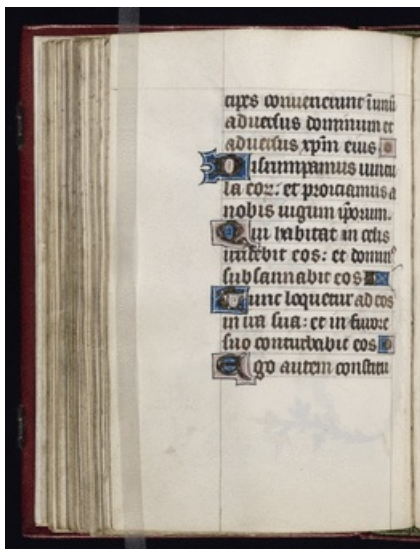 cipes convenerunt ī unū
adversus dominum et
adversus xp̄m eius
Disrumpamus vincu
la eor: et proiciamus a
nobis iugum ip̄orum.
Qui habitat in celis
irridebit eos: et domin⁹
subsannabit eos
Tunc loquetur ad eos
in ira sua: et in furore
suo conturbabit eos
Ego autem constitu